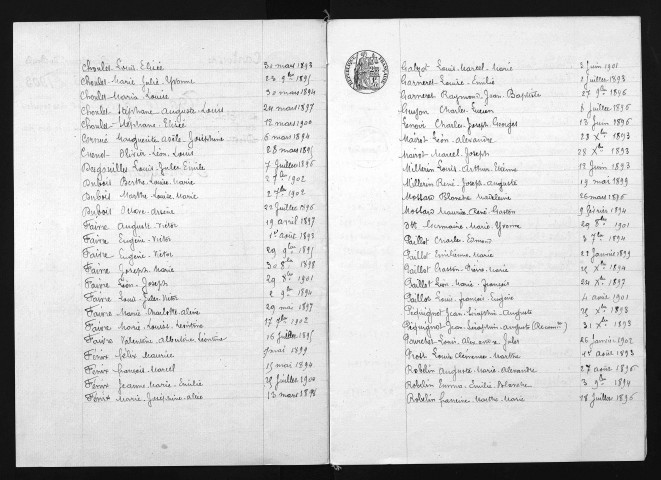 Choulet Louis Elisée 30 mars 1893
Choulet Marie Julie Yvonne 23 9bre 1895
Choulet Maria Louise 30 mars 1894
Choulet Stéphane Auguste Louis 24 mars 1897
Choulet Stéphane Elisée 12 mars 1900
Cornué Marguerite Adèle Joséphine 6 mars 1894
Cuenot Olivier Léon Louis 28 mars 1895
Louis Jules Emile 7 Juillet 1896
Dubois Berthe Louise Marie 1902
Dubois Marthe Louise Marie 2 7bre 1902
Dubois Arsène 22 Juillet 1896
Faivre Auguste Victor 19 avril 1897
Faivre Eugène Victor 1er août 1893
Faivre Eugène Victor 29 9bre 1895
Faivre Joseph Marie 30 8bre 1898
Faivre Léon Joseph 29 Xbre 1901
Faivre Louis Jules Victor 2 9bre 1894
Faivre Marie Charlotte Aline 29 mai 1897
Faivre Marie Louise Léontine 17 9bre 1902
Faivre Valentine Albertine Léontine 16 Juillet 1895
Félix Maurice mai 1899
François Marcel 15 mai 1894
Jeanne Marie Emilie 25 Juillet 1900
Marie Joséphine 13 mars 1898
Louis Marcel Marie 2 Juin 1901
Garneret Louise Emilie 1 Juillet 1893
Garneret Raymond Jean Baptiste 27 9bre 1896
Charles Lucien 6 Juillet 1896
Charles Joseph Georges 13 Juin 1896
Mairot Léon Alexandre 28 Xbre 1893
Mairot Marcel Joseph 28 Xbre 1893
Millerin Louis Arthur Etienne 12 Juin 1893
Millerin René Joseph Auguste 19 mai 1899
Blanche Madeleine 26 mars 1896
Maurice René Gaston 9 février 1894
Ott Germaine Marie Yvonne 29 8bre 1901
Paillot Charles Edmond 3 7bre 1894
Paillot Emilienne Marie 22 Janvier 1899
Paillot Gaston Pierre Marie 25 Xbre 1894
Paillot Léon Marie François 24 Xbre 1897
Paillot Louis François Eugène 4 août 1901
Péquignot Jean Séraphin Auguste 25 Xbre 1893
Péquignot Jean Séraphin Auguste 31 Xbre 1893
Louis Alexandre Jules 26 Janvier 1902
Prost Louise Clémence Marthe 1er août 1893
Robelin Auguste Marie Alexandre 27 août 1896
Robelin Emma Emilie Blanche 3 9bre 1894
Robelin Francine Marthe Marie 18 Juillet 1896